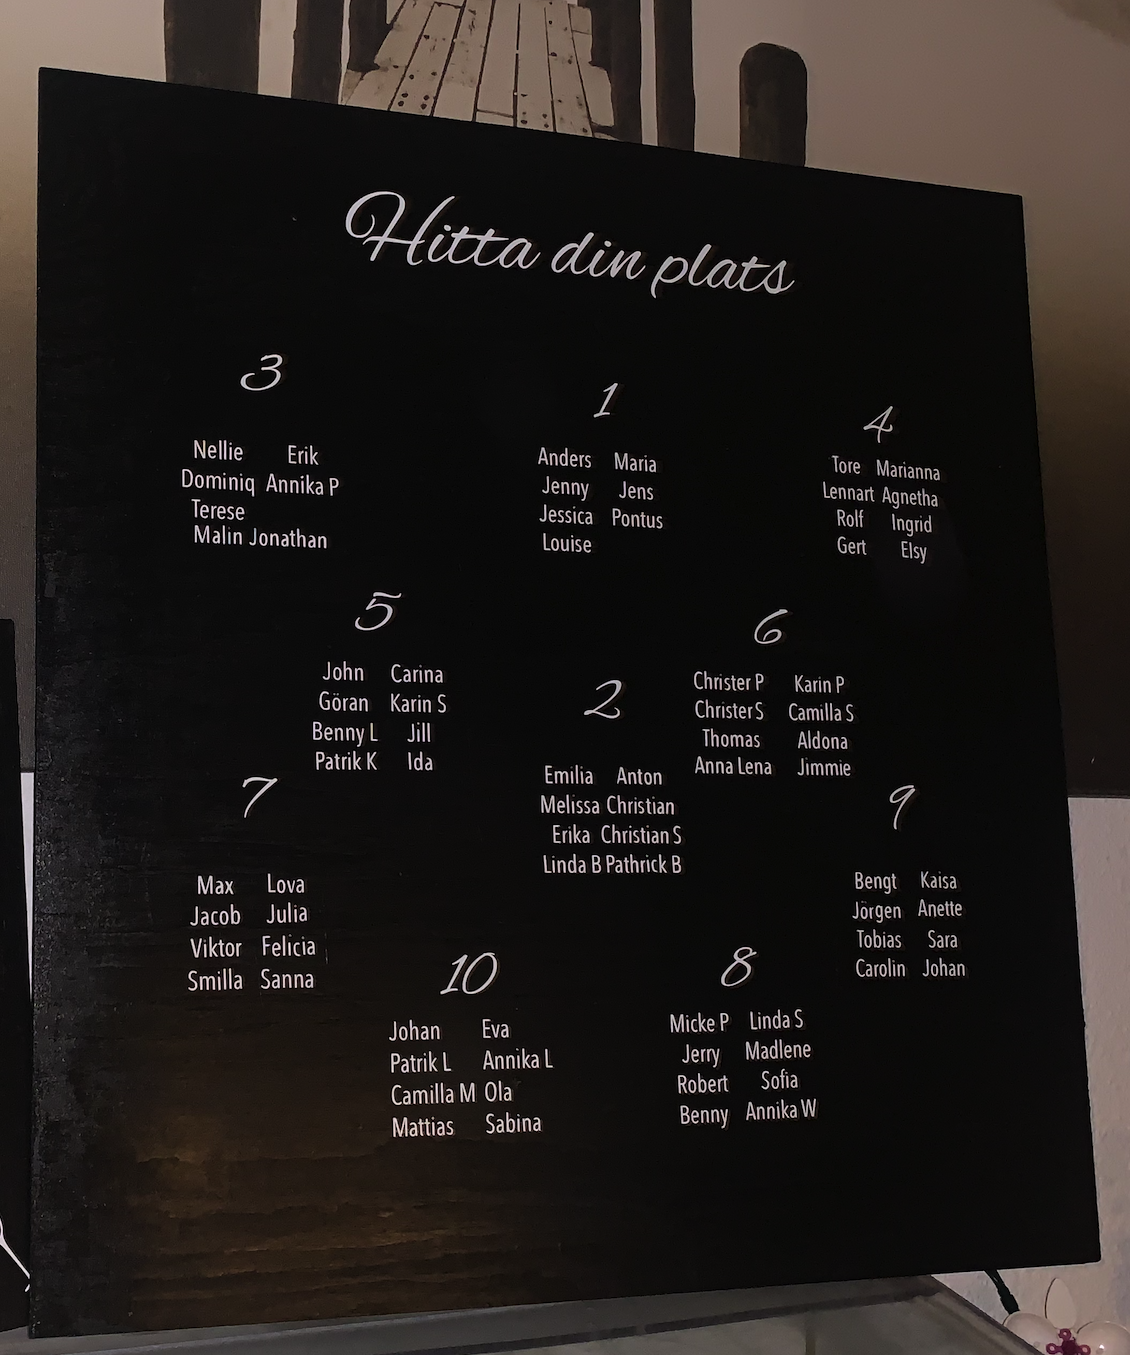 Hitta din plats
3
Nellie Erik
Dominiq Annika P
Terese
Malin Jonathan
1
Anders Maria
Jenny Jens
Jessica Pontus
Louise
4
Tore Marianna
Lennart Agnetha
Rolf Ingrid
Gert Elsy
5
John Carina
Göran Karin S
Benny L Jill
Patrik K Ida
2
Emilia Anton
Melissa Christian
Erika Christian S
Linda B Pathrick B
6
Christer P Karin P
Christer S Camilla S
Thomas Aldona
Anna Lena Jimmie
7
Max Lova
Jacob Julia
Viktor Felicia
Smilla Sanna
9
Bengt Kaisa
Jörgen Anette
Tobias Sara
Carolin Johan
10
Johan Eva
Patrik L Annika L
Camilla M Ola
Mattias Sabina
8
Micke P Linda S
Jerry Madlene
Robert Sofia
Benny Annika W